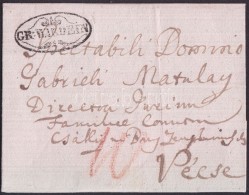 GR-WARDEIN
Spectabili Domino
Gabrieli Matulay
Directori Jurium
Familiae
Csáky
10
Vécse